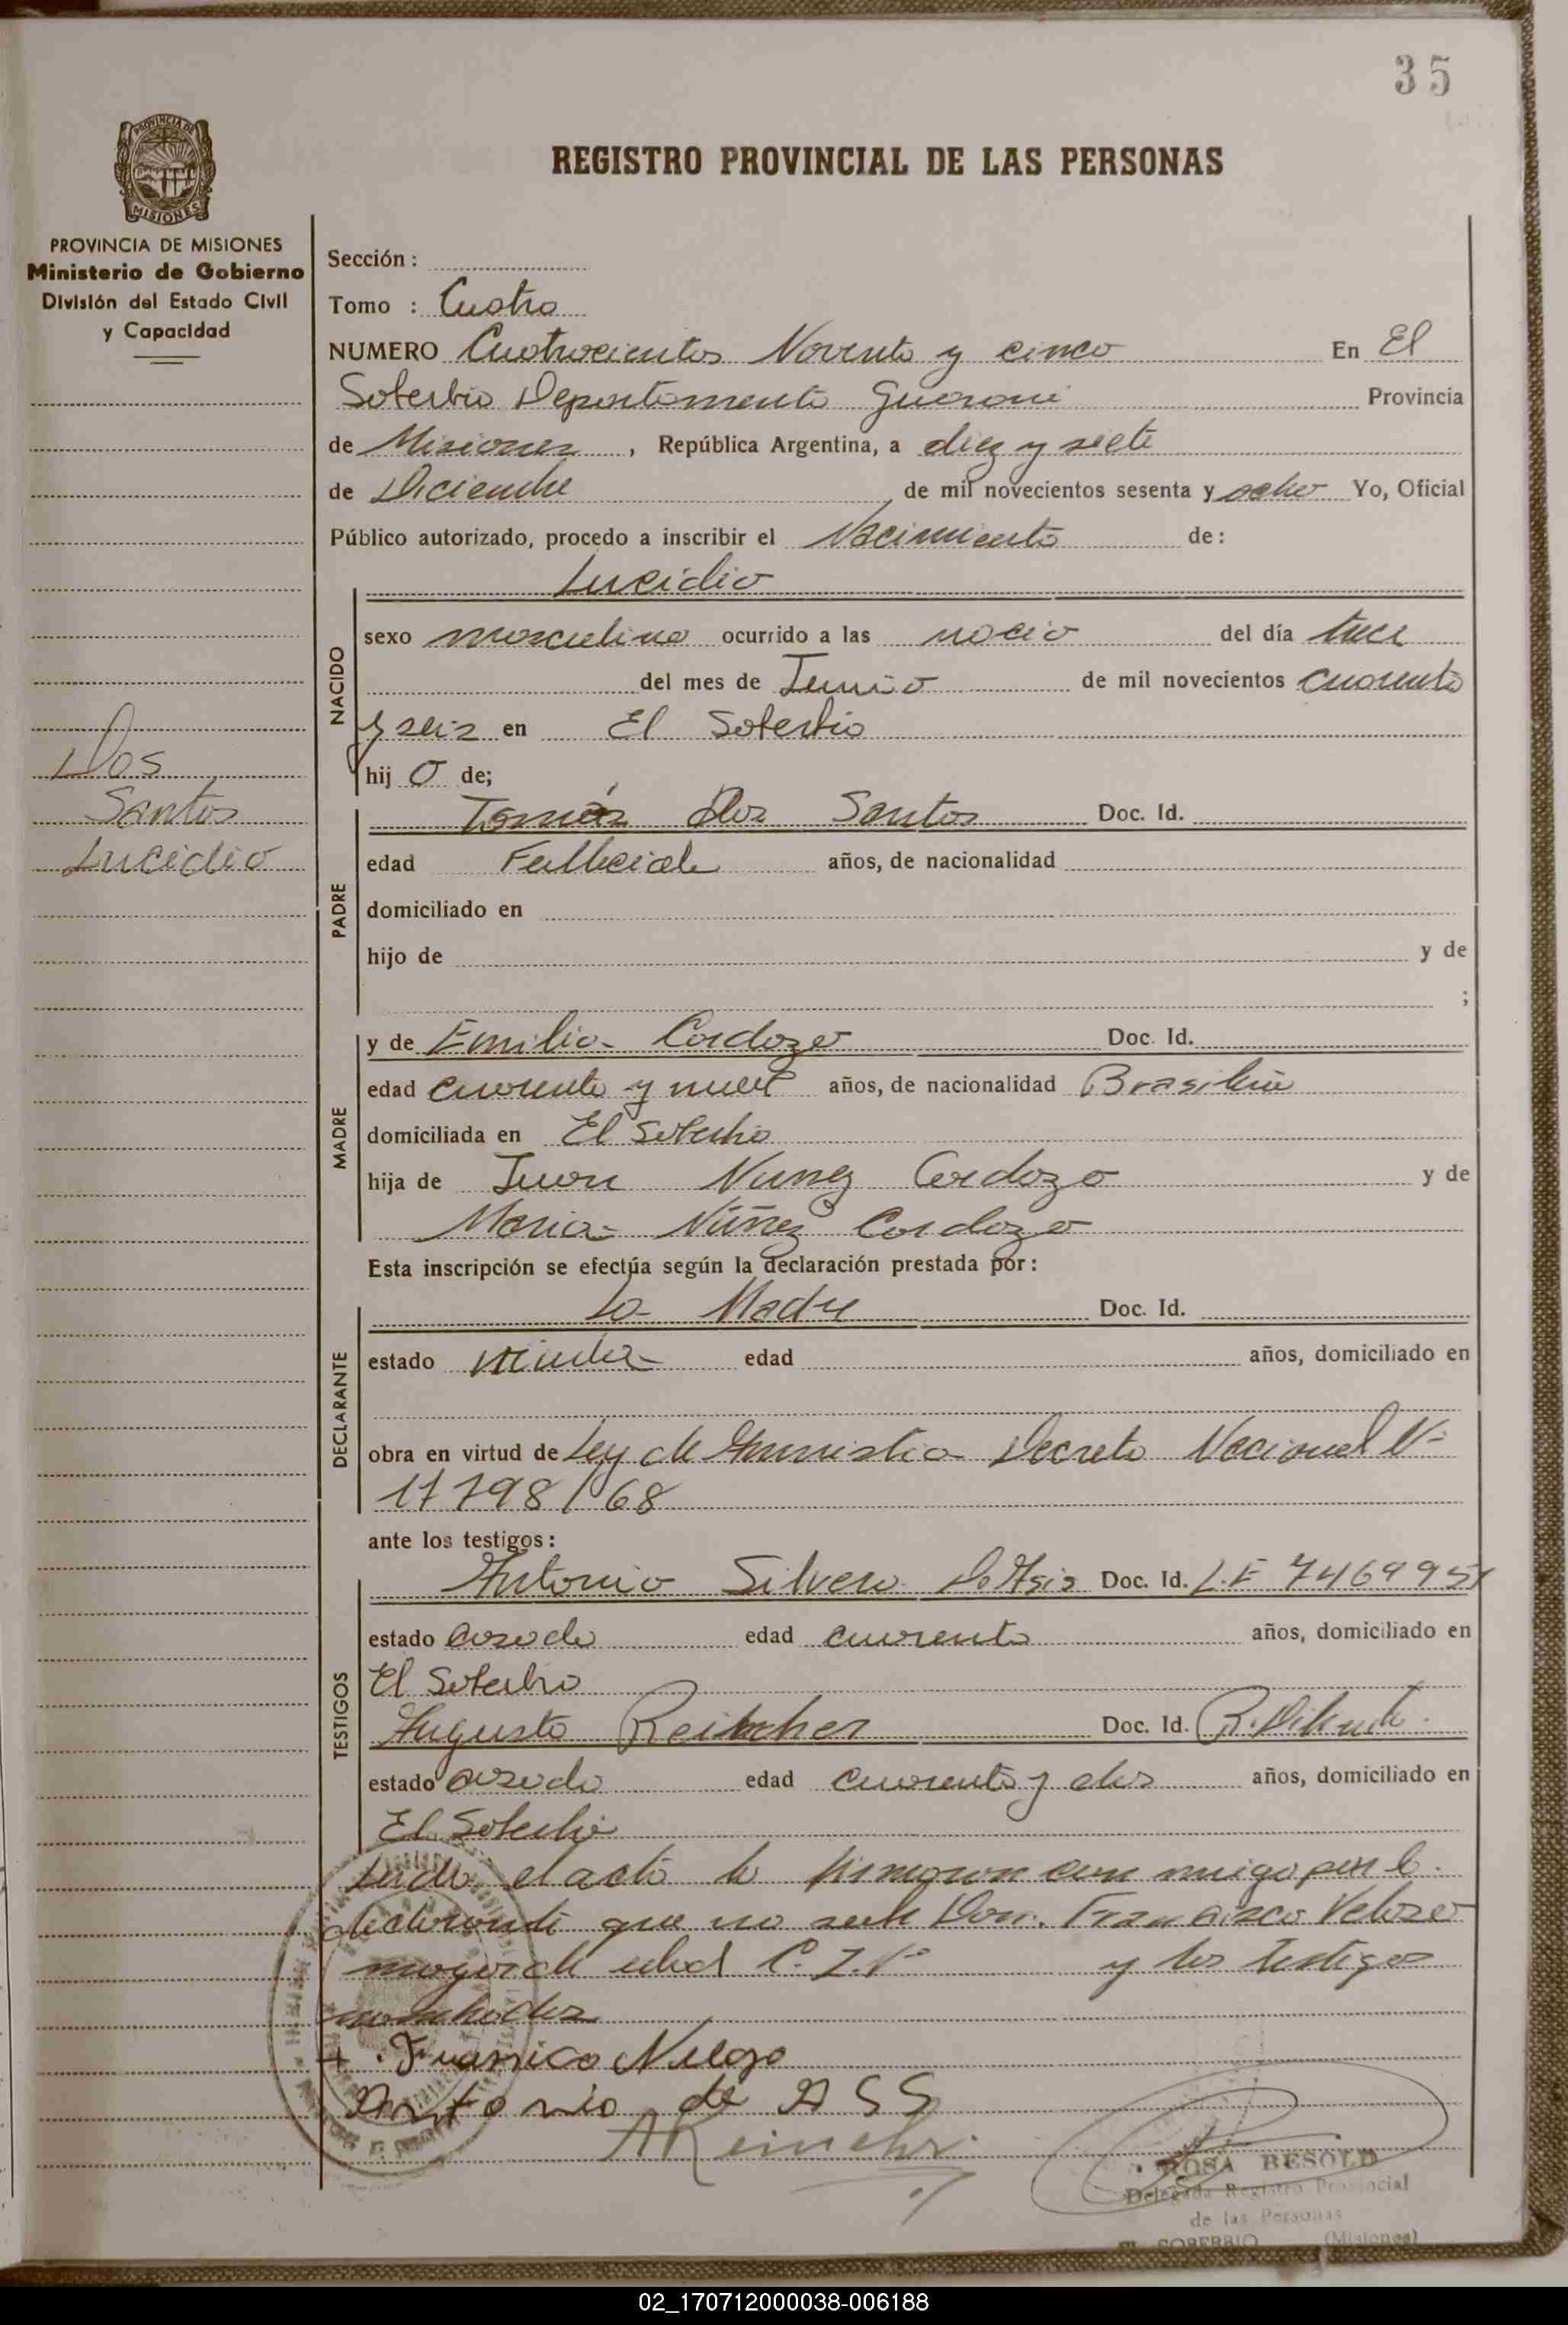 35
REGISTRO PROVINCIAL DE LAS PERSONAS
PROVINCIA DE
MISIONES
PROVINCIA DE MISIONES
Ministerio de Gobierno
División del Estado Civil
y Capacidad
Dos
Santos
Lucidio
Sección :
Tomo : Cuatro
NUMERO Cuatrocientos Noventa y cinco En El
Soberbio Departamento Guarani Provincia
de Misiones , República Argentina, a diez y siete
de Diciembre de mil novecientos sesenta y ocho Yo, Oficial
Público autorizado, procedo a inscribir el Nacimiento de :
Lucidio
NACIDO
sexo masculino ocurrido a las nacio del día trece
del mes de Junio de mil novecientos cuarenta
y seis en El Soberbio
hij o de;
PADRE
Tomás dos Santos Doc. Id.
edad Fallecido años, de nacionalidad
domiciliado en
hijo de y de
;
MADRE
y de Emilia Cardozo Doc. Id.
edad cuarenta y nueve años, de nacionalidad Brasileña
domiciliada en El Soberbio
hija de Juan Nunez Cardozo y de
Maria Núñez Cardozo
Esta inscripción se efectúa según la declaración prestada por :
DECLARANTE
La Madre Doc. Id.
estado viuda edad años, domiciliado en
obra en virtud de Ley de Amnistia Decreto Nacional N°
17798/68
ante los testigos :
TESTIGOS
Antonio Silvero De Asis Doc. Id. L.E 7469951
estado casado edad cuarenta años, domiciliado en
El Soberbio
Augusto Doc. Id.
estado casado edad cuarenta y dos años, domiciliado en
El Soberbio
Leido el acta la firmaron con migo por la
declarante que no sabe Don. Francisco Velozo
mayor de edad C. I. N° y los testigos
nombrados
Antonio de ASS
ROSA BESOLD
Delegada Registro Provincial
de las Personas
EL SOBERBIO (Misiones)
02_170712000038-006188